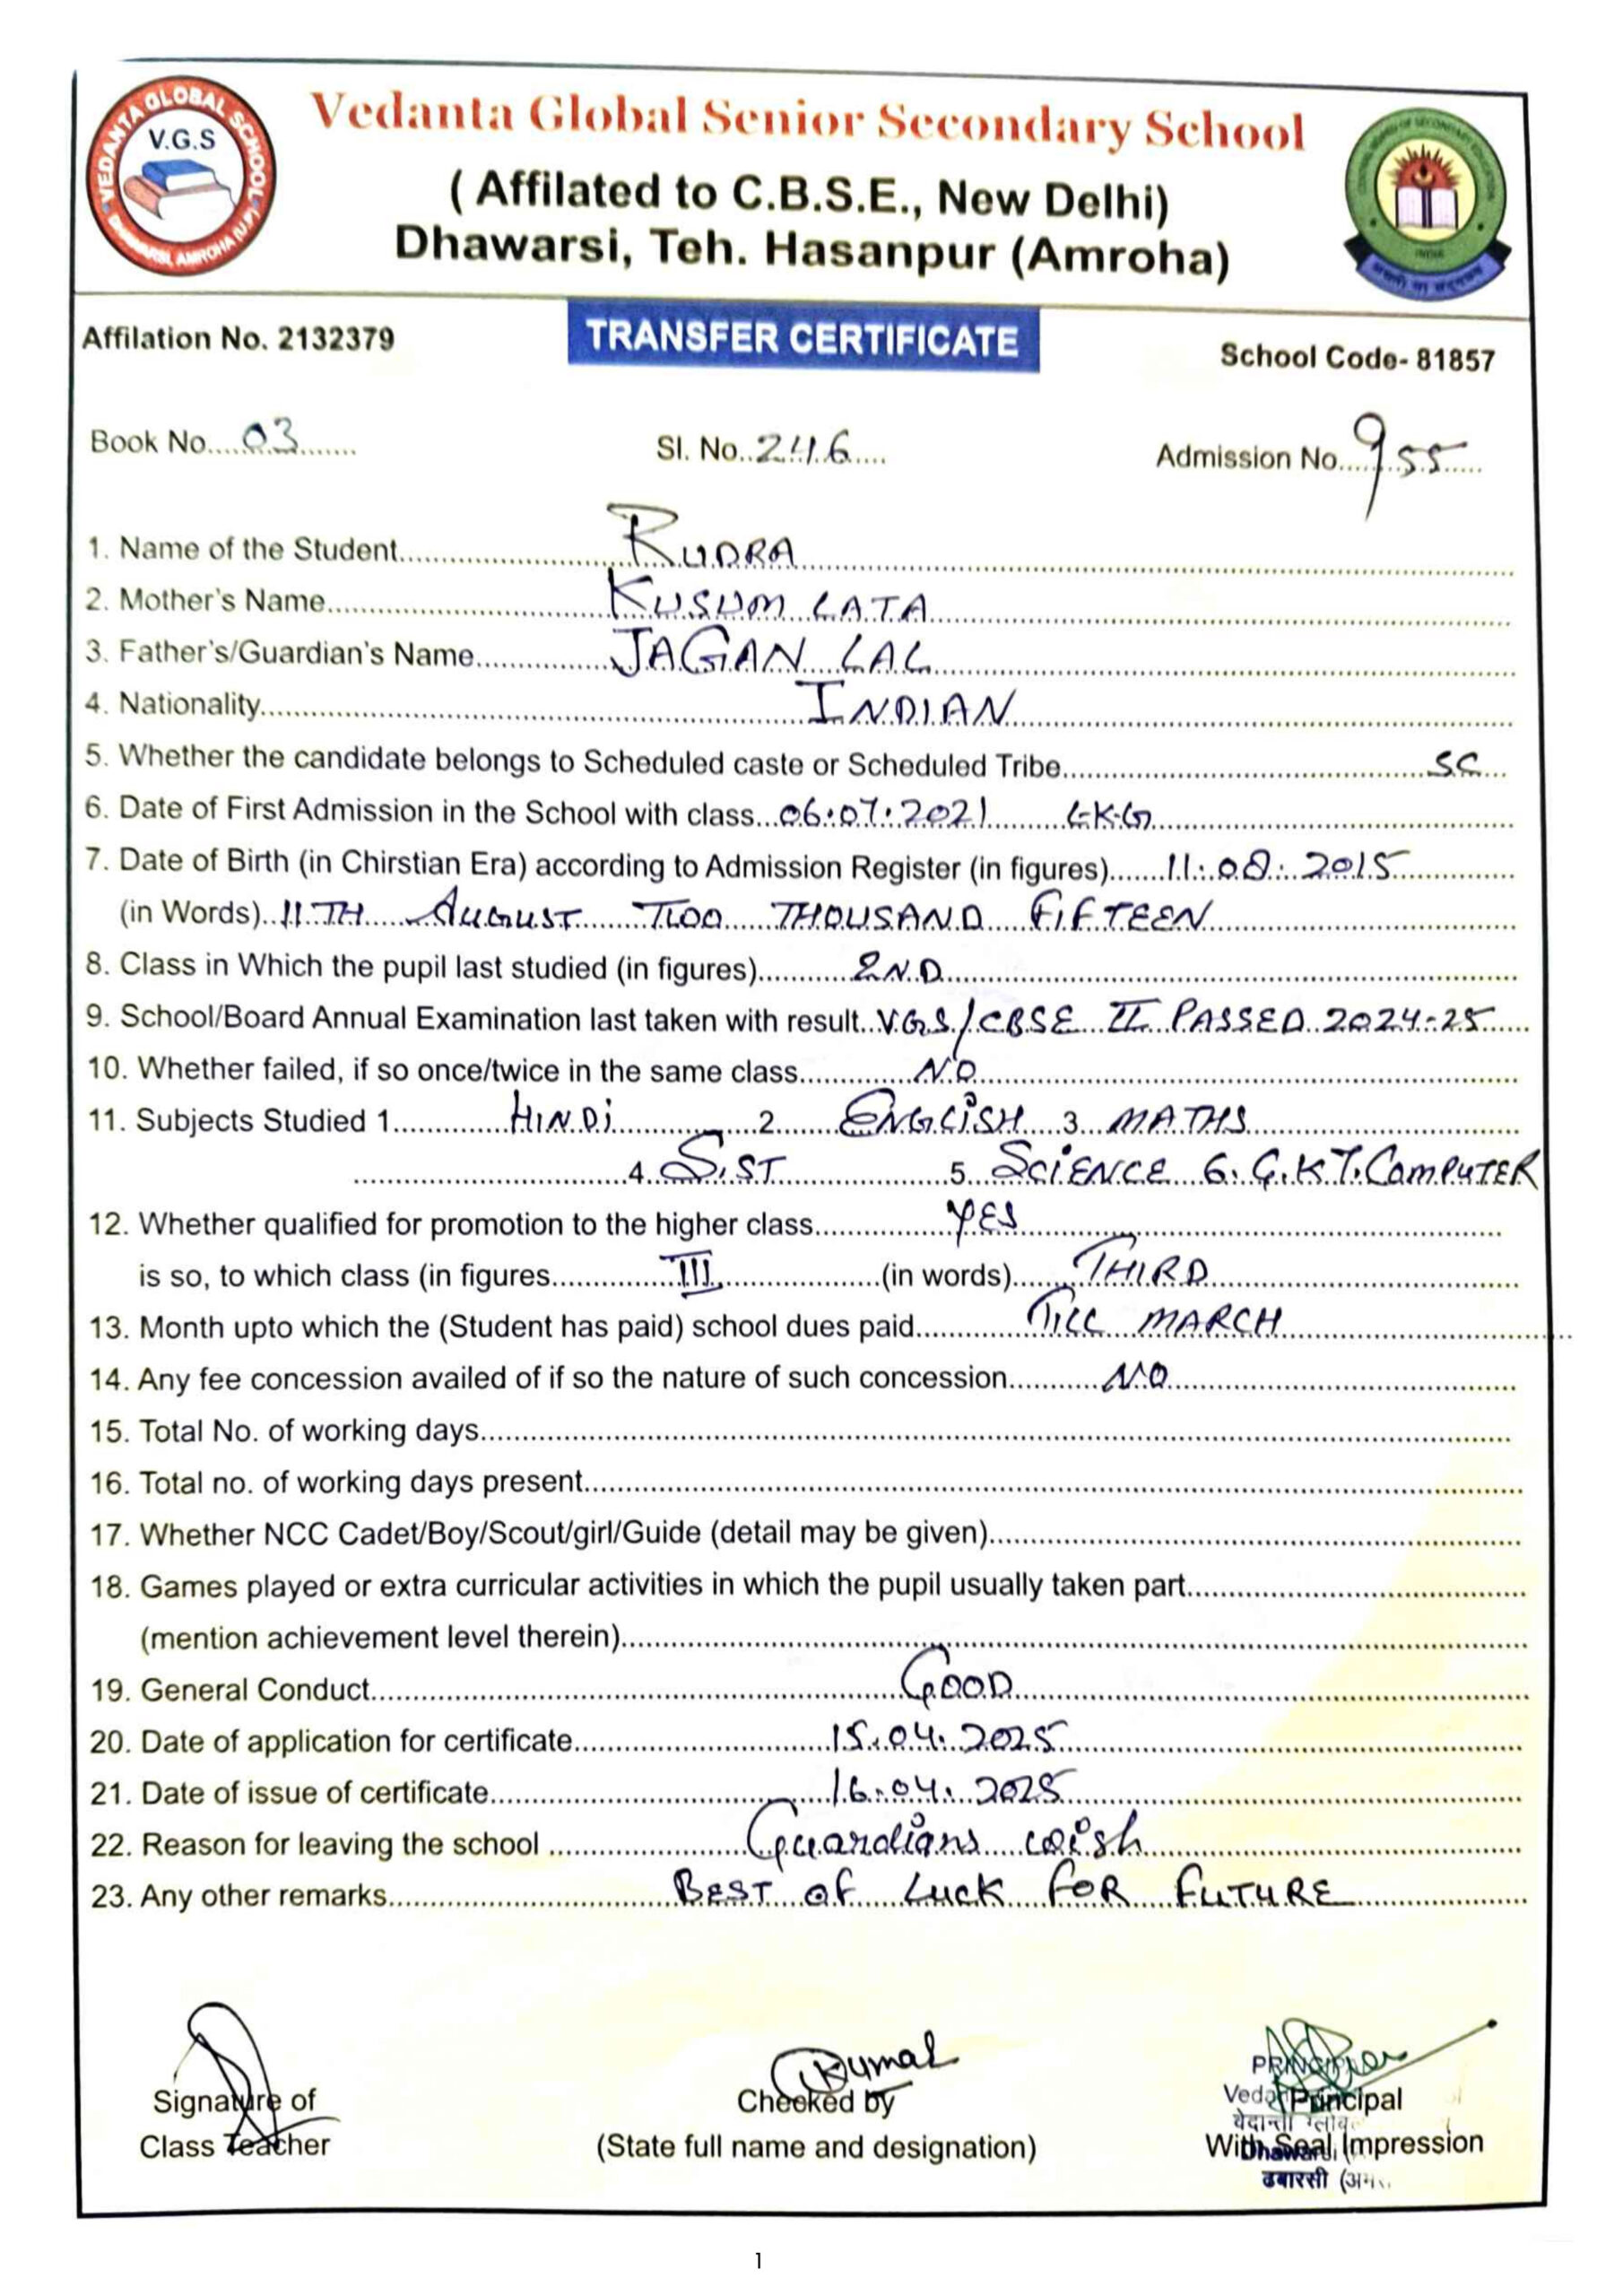 VEDANTA GLOBAL SCHOOL
V.G.S
DHAWARSI, AMROHA (U.P.)
Vedanta Global Senior Secondary School
( Affilated to C.B.S.E., New Delhi)
Dhawarsi, Teh. Hasanpur (Amroha)
Affilation No. 2132379
TRANSFER CERTIFICATE
School Code- 81857
Book No. 03 Sl. No. 246 Admission No. 955
1. Name of the Student RUDRA
2. Mother's Name KUSUM LATA
3. Father's/Guardian's Name JAGAN LAL
4. Nationality INDIAN
5. Whether the candidate belongs to Scheduled caste or Scheduled Tribe SC
6. Date of First Admission in the School with class 06.07.2021 LKG
7. Date of Birth (in Chirstian Era) according to Admission Register (in figures) 11.08.2015
(in Words) 11TH AUGUST TWO THOUSAND FIFTEEN
8. Class in Which the pupil last studied (in figures) 2ND
9. School/Board Annual Examination last taken with result V.G.S / CBSE II PASSED 2024-25
10. Whether failed, if so once/twice in the same class NO
11. Subjects Studied 1 HINDI 2 ENGLISH 3 MATHS
4. S.ST 5. SCIENCE 6. G.K 7. COMPUTER
12. Whether qualified for promotion to the higher class YES
is so, to which class (in figures III (in words) THIRD
13. Month upto which the (Student has paid) school dues paid TILL MARCH
14. Any fee concession availed of if so the nature of such concession NO
15. Total No. of working days
16. Total no. of working days present
17. Whether NCC Cadet/Boy/Scout/girl/Guide (detail may be given)
18. Games played or extra curricular activities in which the pupil usually taken part
(mention achievement level therein)
19. General Conduct GOOD
20. Date of application for certificate 15.04.2025
21. Date of issue of certificate 16.04.2025
22. Reason for leaving the school Guardians wish
23. Any other remarks BEST OF LUCK FOR FUTURE
Signature of
Class Teacher
Kumar
Checked by
(State full name and designation)
PRINCIPAL
Principal
With Seal Impression
ढबारसी
1